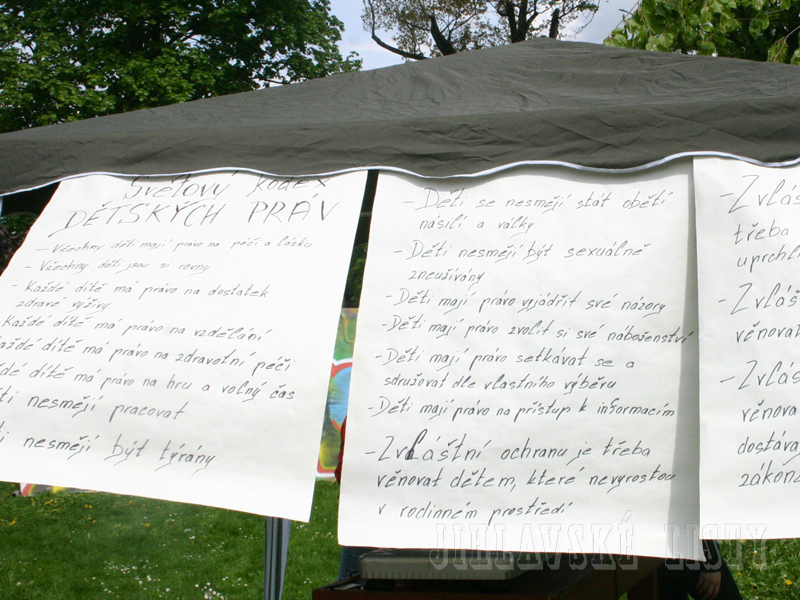 Světový kodex
DĚTSKÝCH PRÁV
- Všechny děti mají právo na péči a lásku
- Všechny děti jsou si rovny
- Každé dítě má právo na dostatek
zdravé výživy
Každé dítě má právo na vzdělání
každé dítě má právo na zdravotní péči
dítě má právo na hru a volný čas
nesmějí pracovat
nesmějí být týrány
- Děti se nesmějí stát obětí
násilí a války
- Děti nesmějí být sexuálně
zneužívány
- Děti mají právo vyjádřit své názory
- Děti mají právo zvolit si své náboženství
- Děti mají právo setkávat se a
sdružovat dle vlastního výběru
- Děti mají právo na přístup k informacím
- Zvláštní ochranu je třeba
věnovat dětem, které nevyrostou
v rodinném prostředí
- Zvlášt
třeba
uprchlí
- Zvlášt
věnovat
- Zvlášt
věnova
dostáva
zákone
JIHLAVSKÉ LISTY